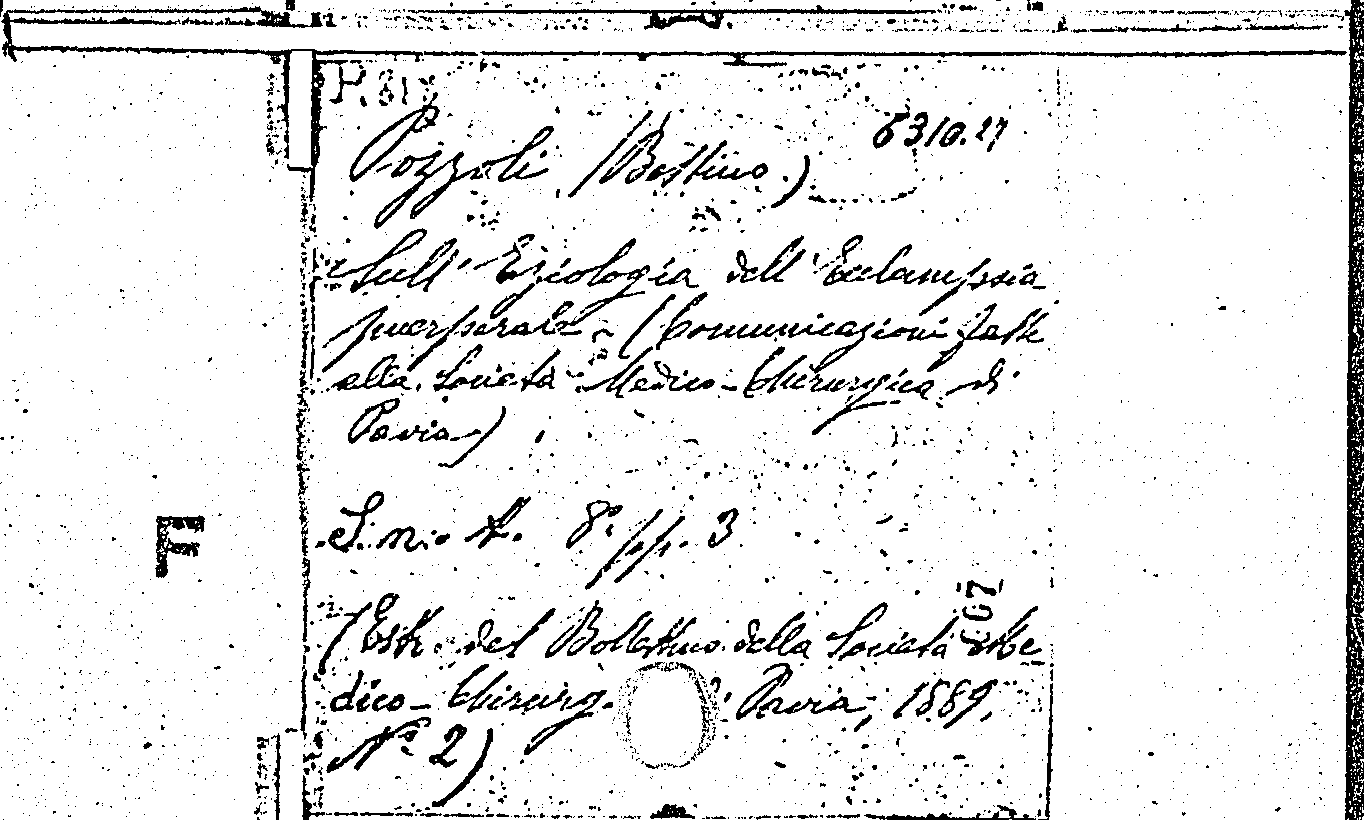 Pozzoli (Bettino)
6310.27
Sull' Eziologia dell' Eclampssia
puerperale - (Comunicazioni fatte
alla Società Medico-Chirurgica di
Pavia)
S. n. t. 8° pp. 3
(Estr. del Bollettino della Società Me
dico-Chirurg. di Pavia, 1889,
N° 2)